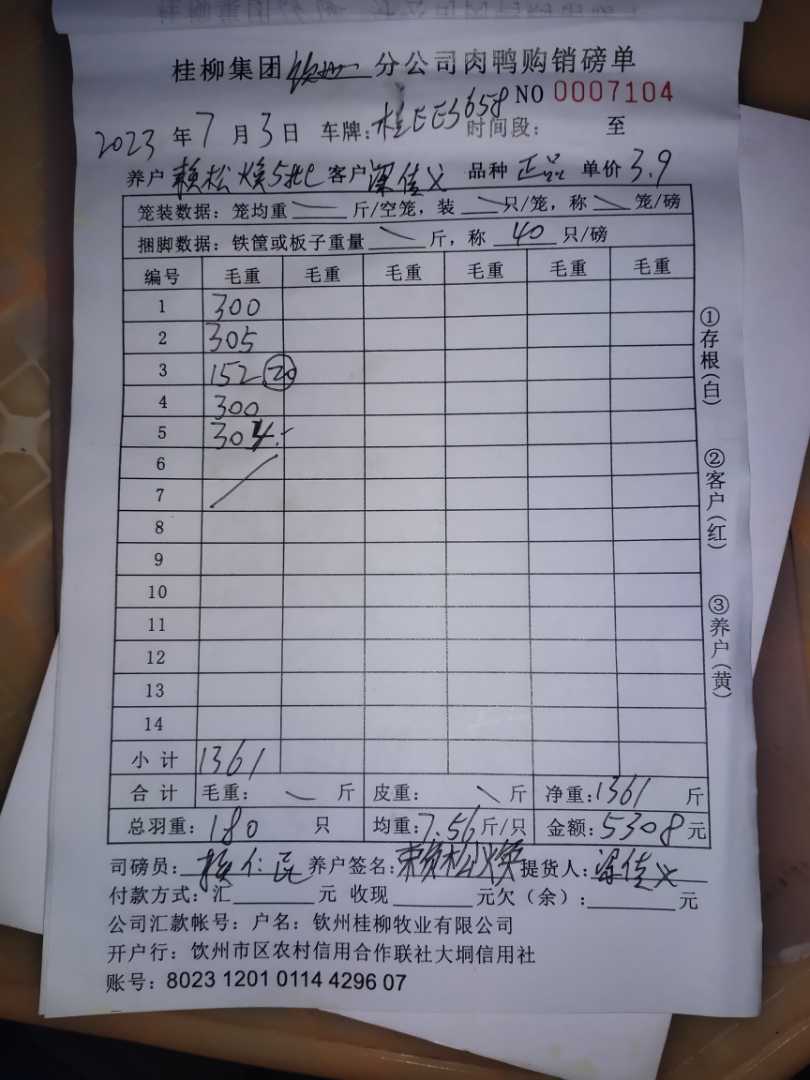 桂柳集团钦州分公司肉鸭购销磅单
NO 0007104
2023年7月3日 车牌:桂EE3658 时间段: 至
养户 赖松焕5批 客户 梁佳义 品种 正品 单价 3.9
笼装数据:笼均重 斤/空笼,装 只/笼,称 笼/磅
捆脚数据:铁筐或板子重量 斤,称 40 只/磅
编号 毛重 毛重 毛重 毛重 毛重 毛重
1 300
2 305
3 152 20
4 300
5 304
6
7
8
9
10
11
12
13
14
小计 1361
合计 毛重: 斤 皮重: 斤 净重:1361 斤
总羽重:180 只 均重:7.56 斤/只 金额:5308元
司磅员: 养户签名:赖松焕 提货人:梁佳义
付款方式:汇 元 收现 元欠(余): 元
公司汇款帐号:户名:钦州桂柳牧业有限公司
开户行:饮州市区农村信用合作联社大垌信用社
账号:8023 1201 0114 4296 07
①存根(白)
②客户(红)
③养户(黄)